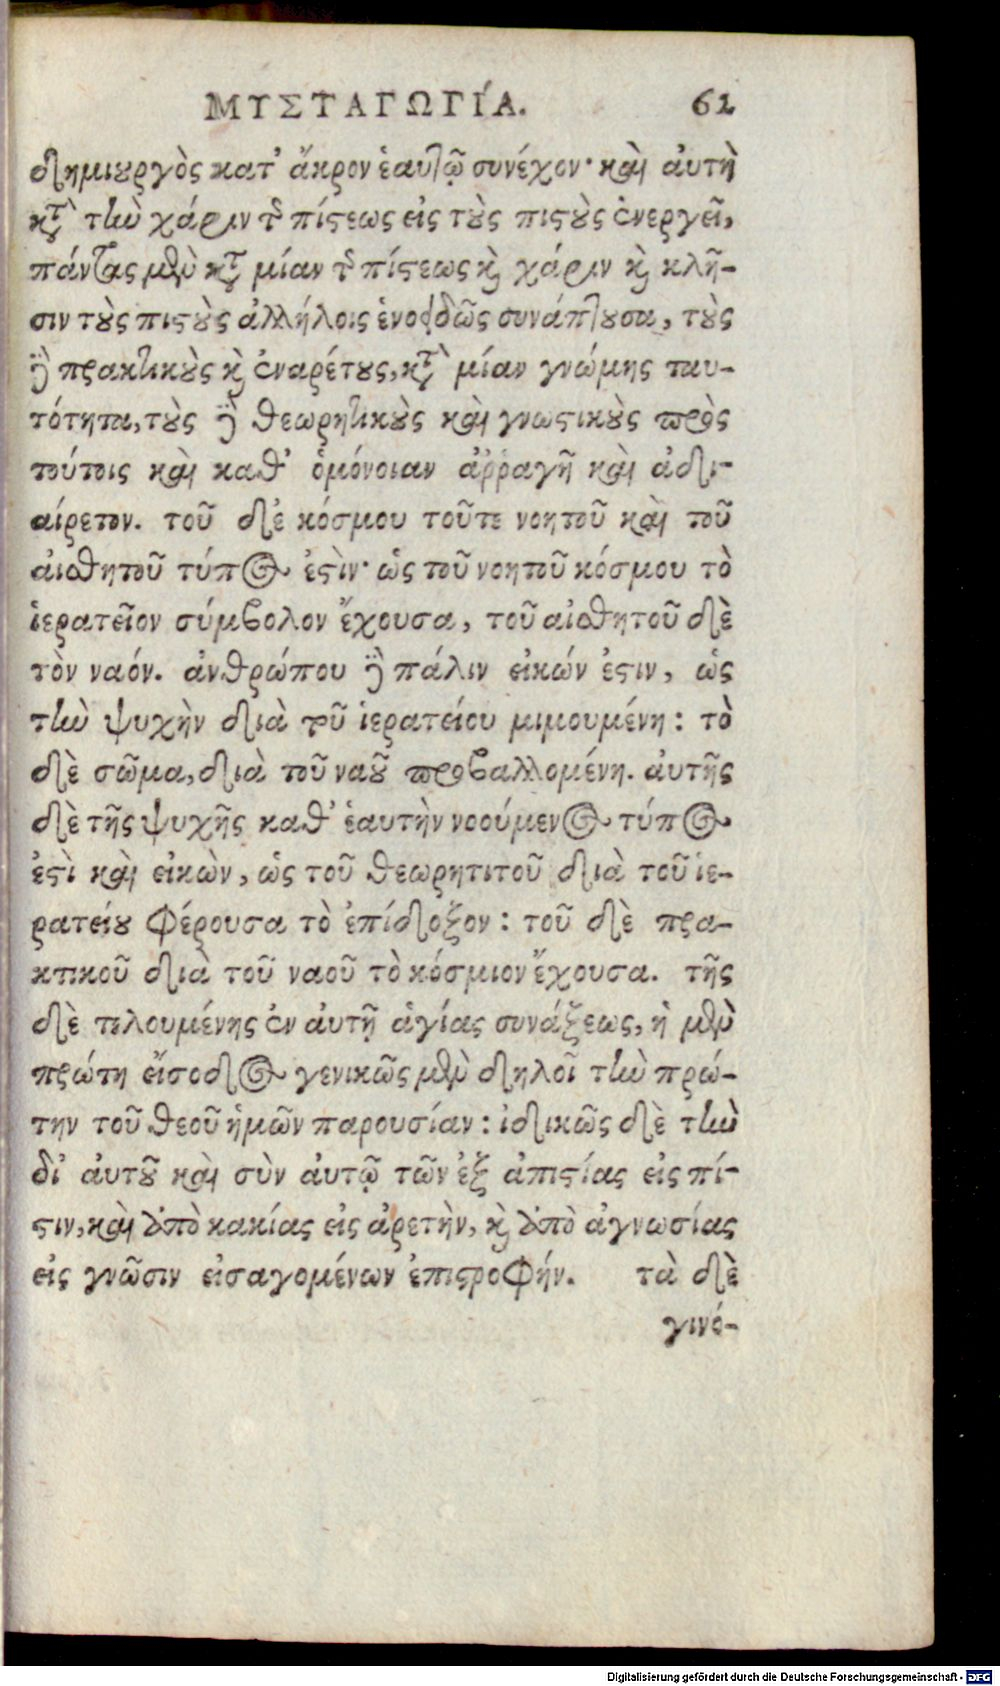 ΜΥΣΤΑΓΩΓΊΑ. 62
δημιουργὸς κατ' ἄκρον ἑαυτῷ συνέχον· καὶ ἀυτὴ
κτ̀ τὴν χάριν τῆς πίστεως εἰς τοὺς πιστοὺς ἐνεργεῖ,
πάντας μὲν κτ̀ μίαν τῆς πίστεως καὶ χάριν καὶ κλῆ-
σιν τοὺς πιστοὺς ἀλλήλοις ἑνοειδῶς συνάπτουσα, τοὺς
δὲ πρακτικοὺς καὶ ἐναρέτους, κτ̀ μίαν γνώμης ταυ-
τότητα, τοὺς δὲ θεωρητικοὺς καὶ γνωστικοὺς πρὸς
τούτοις καὶ καθ' ὁμόνοιαν ἀῤῥαγῆ καὶ ἀδι-
αίρετον. τοῦ δὲ κόσμου τοῦτε νοητοῦ καὶ τοῦ
ἀισθητοῦ τύπος ἐστὶν· ὡς τοῦ νοητοῦ κόσμου τὸ
ἱερατεῖον σύμβολον ἔχουσα, τοῦ αἰσθητοῦ δὲ
τὸν ναόν. ἀνθρώπου δὲ πάλιν εἰκών ἐστιν, ὡς
τὴν ψυχὴν διὰ τοῦ ἱερατείου μιμουμένη: τὸ
δὲ σῶμα, διὰ τοῦ ναοῦ προβαλλομένη. ἀυτῆς
δὲ τῆς ψυχῆς καθ' ἑαυτὴν νοούμενος τύπος
ἐστὶ καὶ εἰκὼν, ὡς τοῦ θεωρητιτοῦ διὰ τοῦ ἱε-
ρατείου φέρουσα τὸ ἐπίδοξον: τοῦ δὲ πρα-
κτικοῦ διὰ τοῦ ναοῦ τὸ κόσμιον ἔχουσα. τῆς
δὲ τελουμένης ἐν ἀυτῇ ἁγίας συνάξεως, ἡ μὲν
πρώτη εἴσοδος γενικῶς μὲν δηλοῖ τὴν πρώ-
την τοῦ θεοῦ ἡμῶν παρουσίαν: ἰδικῶς δὲ τὴν
δι' ἀυτοῦ καὶ σὺν ἀυτῷ τῶν ἐξ ἀπιστίας εἰς πί-
στιν, καὶ ἀπὸ κακίας εἰς ἀρετὴν, καὶ ἀπὸ ἀγνωσίας
εἰς γνῶσιν εἰσαγομένων ἐπιστροφήν. τὰ δὲ
γινό-
Digitalisierung gefördert durch die Deutsche Forschungsgemeinschaft - DFG